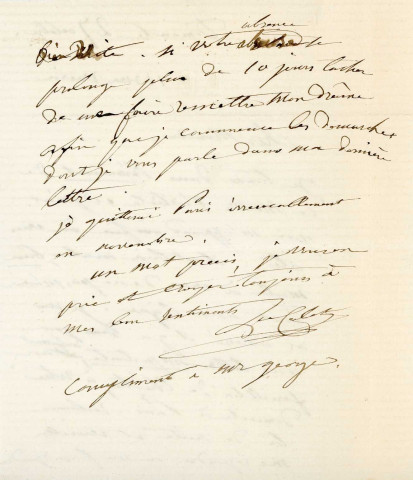 absence
bien vite. si votre
prolonge plus de 10 jours tachez
de me faire remettre mon
afin que je commence les demarches
dont je vous parle dans ma derniere
lettre.
je quitterai Paris irrevocablement
en novembre.
un mot precis, je vous en
prie et croyez toujours à
mes bon sentiments
Compliment à Mr george.